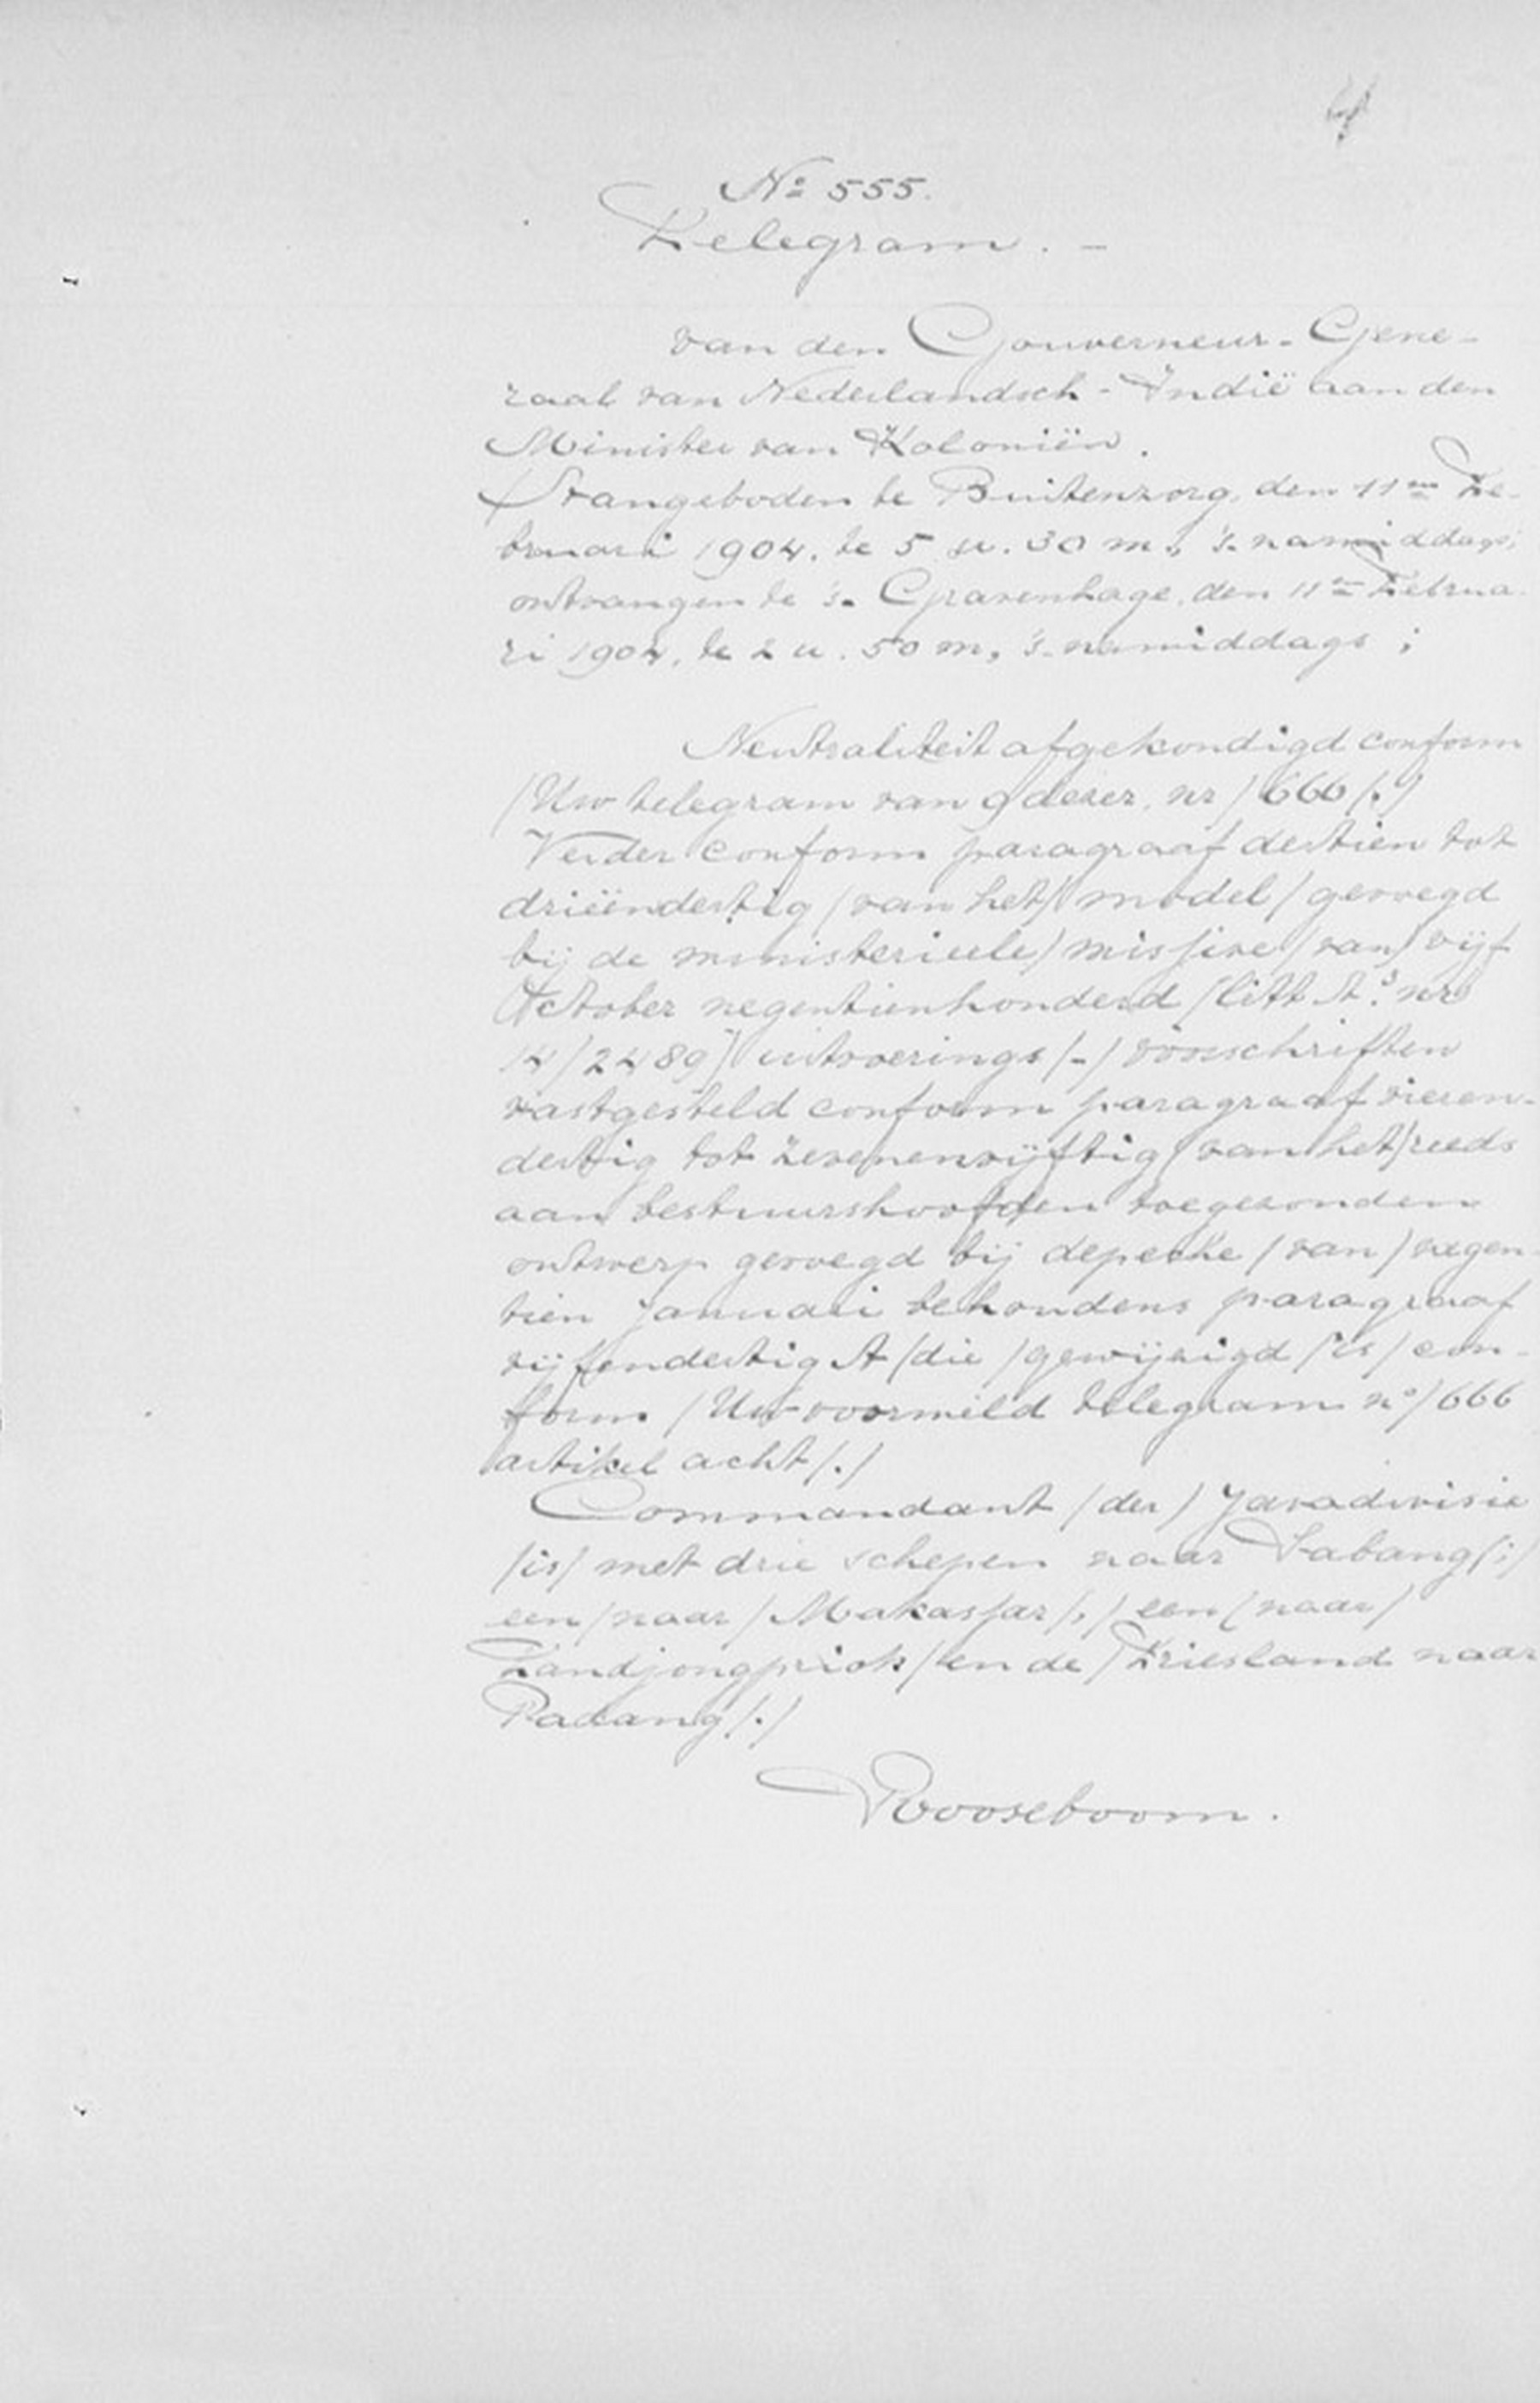 No 555.
Telegram. -
van den Gouverneur-Gene-
raal van Nederlandsch-Indië aan den
Minister van Koloniën.
Aangeboden te Buitenzorg, den 11en Fe-
bruari 1904, te 5 u. 30 m., 's-namiddags;
ontvangen te 's-Gravenhage, den 11en Februa-
ri 1904, te 2 u. 50 m, 's-namiddags;
Neutraliteit afgekondigd conform
/Uw telegram van 9 dezer, nr/ 666 /./
Verder conform paragraaf dertien tot
drieëndertig /van het/ model /gevoegd
bij de ministerieele/ missive /van/ vijf
October negentienhonderd /litt A3 nr
14/2489/ uitvoerings/-/voorschriften
vastgesteld conform paragraaf vieren-
dertig tot zevenenvijftig /van het/ reeds
aan bestuurshoofden toegezonden
ontwerp gevoegd bij depeche /van/ negen-
tien Januari behoudens paragraaf
vijfendertig A /die/ gewijzigd /is/ con-
form /Uw voormeld telegram no/ 666
artikel acht /./
Commandant /der/ Javadivisie
/is/ met drie schepen naar Sabang /;/
een /naar/ Makassar /,/ een /naar/
Tandjongpriok /en de/ Friesland naar
Padang /./
Rooseboom.